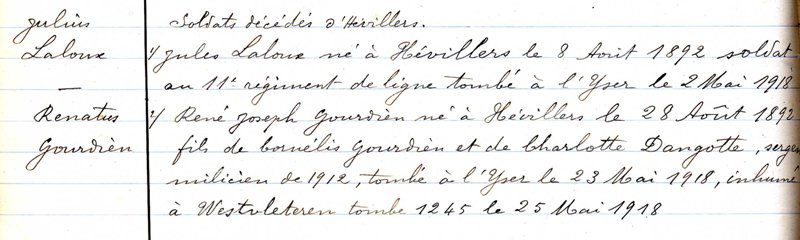 Soldats décédés d'Hévillers.
Julius
Laloux
—
1/ Jules Laloux né à Hévillers le 8 Août 1892 soldat
au 11e régiment de ligne tombé à l'Yser le 2 Mai 1918
Renatus
Gourdien
2/ René Joseph Gourdien né à Hévillers le 28 Août 1892
fils de Cornélis Gourdien et de Charlotte Dangotte, sergen
milicien de 1912, tombé à l'Yser le 23 Mai 1918, inhumé
à Westvleteren tombe 1245 le 25 Mai 1918